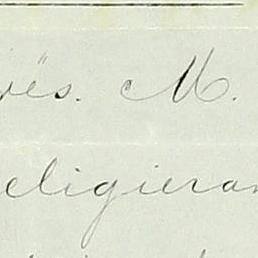 vës. M.
eligieran